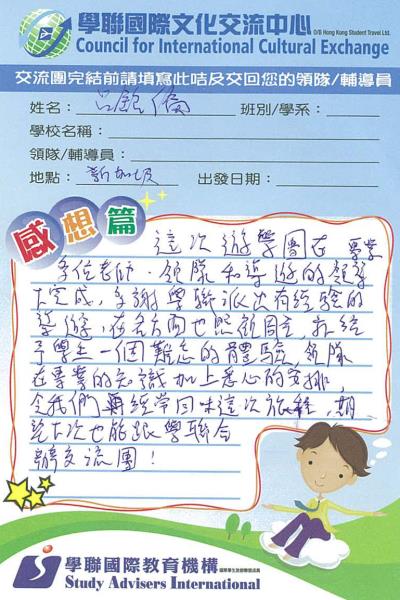 學聯國際文化交流中心
O/B Hong Kong Student Travel Ltd.
Council for International Cultural Exchange
交流團完結前請填寫此咭及交回您的領隊/輔導員
姓名：呂 僑 班別/學系：
學校名稱：
領隊/輔導員：
地點：新加坡 出發日期：
感想篇
這次遊學團在
多位老師、領隊和導遊的領導
下完成，多謝學聯派出有經驗的
導遊，在各方面也照顧周至，
予學生一個難忘的體驗，領隊
在專業的知識加上悉心的安排，
令我們再經常回味這次旅程，期
望下次也能跟學聯合
辦交流團！
學聯國際教育機構
Study Advisers International